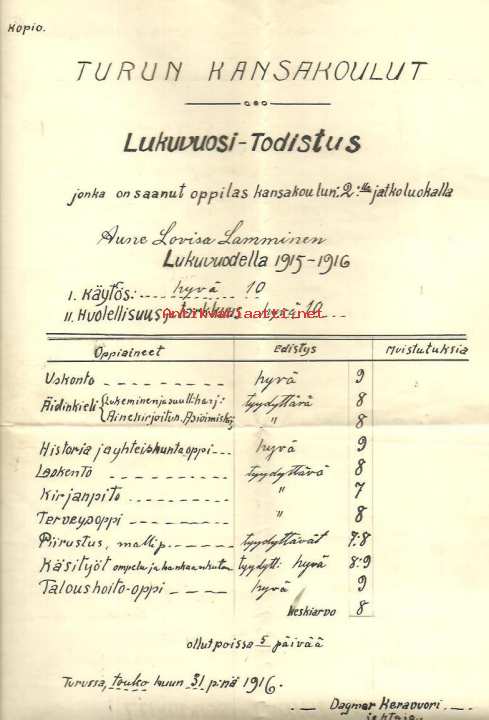 Kopio.
TURUN KANSAKOULUT
Lukuvuosi-Todistus
jonka on saanut oppilas kansakoulun 2:lla jatkoluokalla
Aune Lovisa Lamminen
Lukuvuodella 1915-1916
I. Käytös: hyvä 10
II. Huolellisuus ja tarkkuus hyvä 10
Antikvariaatti.net
Oppiaineet Edistys Muistutuksia
Uskonto hyvä 9
Äidinkieli { Lukeminen ja suull. harj.: tyydyttävä 8
Ainekirjoitus. Asioimiskirj. " 8
Historia ja yhteiskuntaoppi hyvä 9
Laskento tyydyttävä 8
Kirjanpito " 7
Terveysoppi " 8
Piirustus, mallip. tyydyttävät 7:8
Käsityöt ompelu ja kankaankutom. tyydytt: hyvä 8:9
Taloushoito-oppi hyvä 9
Keskiarvo 8
ollut poissa 5 päivää
Turussa, touko kuun 31 p:nä 1916.
Dagmar Keravuori
johtaja